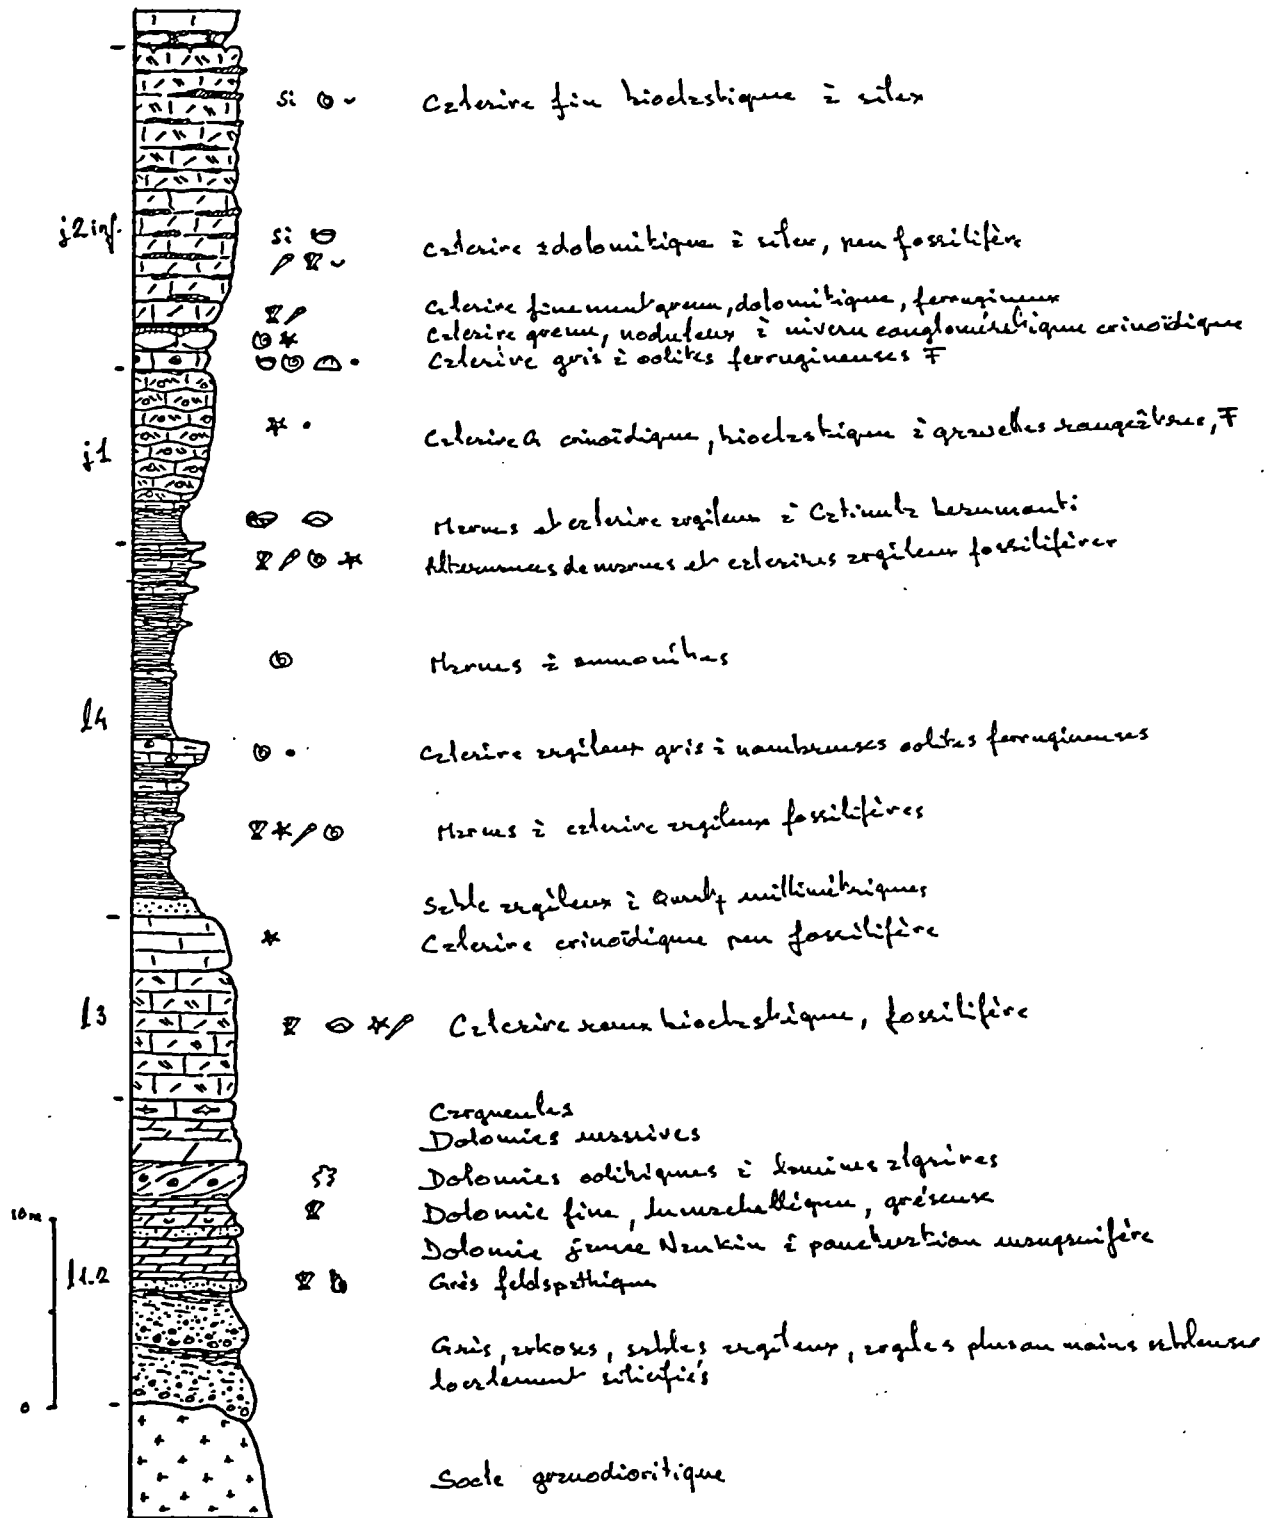 Si Calcaire fin bioclastique à silex
j2 inf.
Si Calcaire dolomitique à silex, peu fossilifère
Calcaire finement grenu, dolomitique, ferrugineux
Calcaire grenu, noduleux à niveau conglomératique crinoïdique
Calcaire gris à oolites ferrugineuses F
Calcaire crinoïdique, bioclastique à gravelles rougeâtres, F
j1
Marnes et calcaire argileux à Catinula beaumonti
Alternances de marnes et calcaires argileux fossilifères
Marnes à ammonites
l4
Calcaire argileux gris à nombreuses oolites ferrugineuses
Marnes à calcaire argileux fossilifères
Sable argileux à Quartz millimétriques
Calcaire crinoïdique peu fossilifère
l3 Calcaire roux bioclastique, fossilifère
Cargneules
Dolomies massives
Dolomies oolitiques à lamines algaires
10m Dolomie fine, lumachellique, gréseuse
Dolomie jaune Nankin à ponctuation manganifère
l1.2 Grès feldspathique
Grès, arkoses, sables argileux, argiles plus ou moins sableuses
localement silicifiés
0
Socle granodioritique